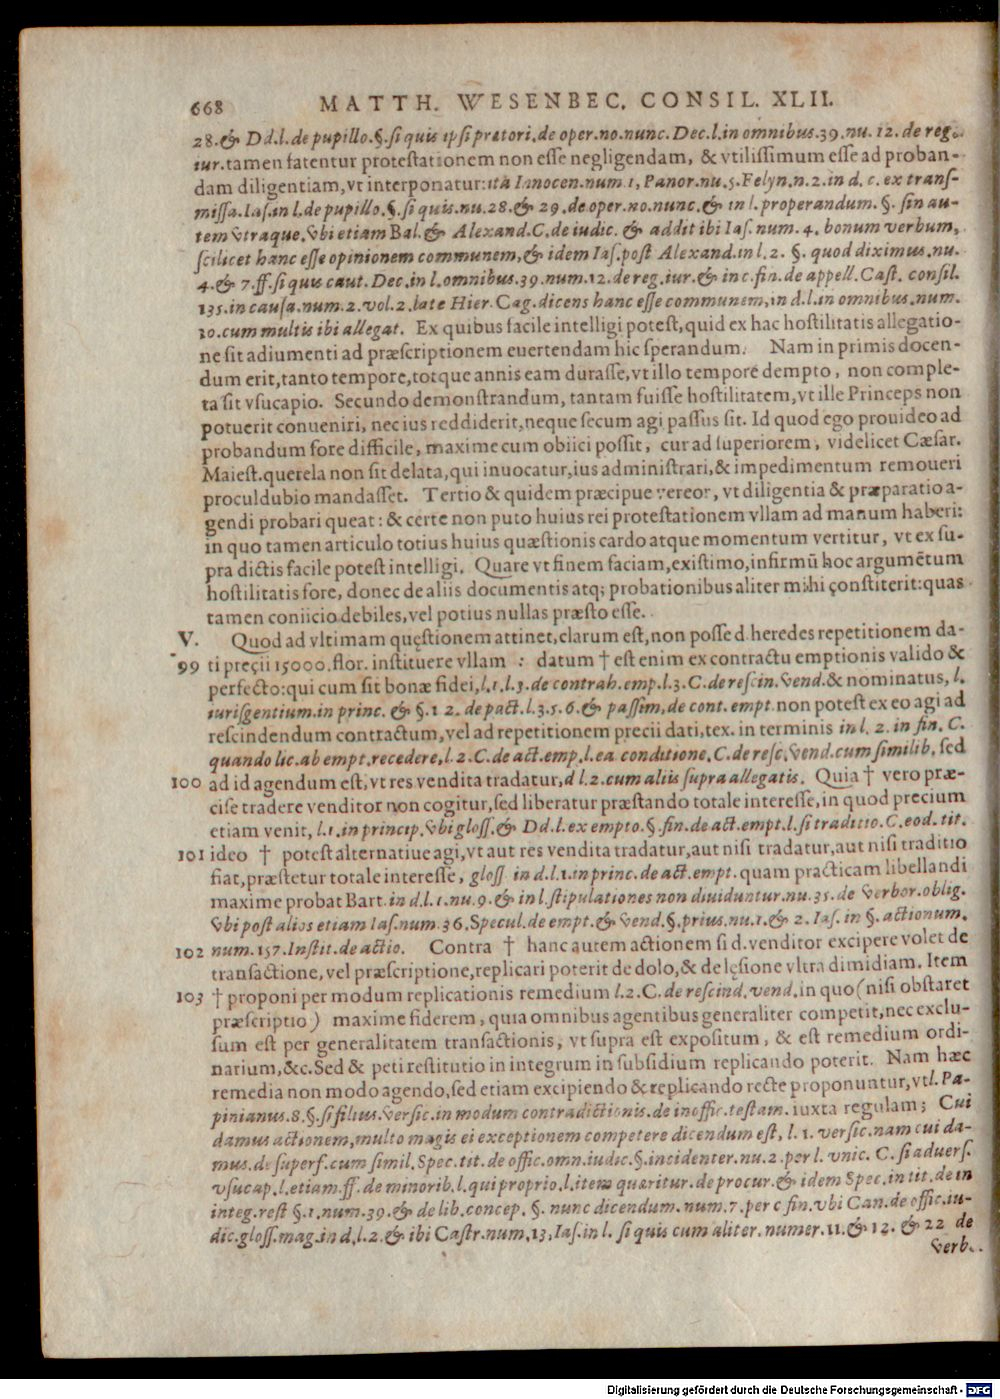 668 MATTH. WESENBEC. CONSIL. XLII.
28. & Dd.l. de pupillo. §. si quis ipsi prætori. de oper. no. nunc. Dec. l. in omnibus. 39. nu. 12. de reg.
iur. tamen fatentur protestationem non esse negligendam, & vtilissimum esse ad proban-
dam diligentiam, vt interponatur: ita Innocen. num. 1, Panor. nu. 5. Felyn. n. 2. in d. c. ex trans-
missa. Ias. in l. de pupillo. §. si quis. nu. 28. & 29. de oper. no. nunc. & in l. properandum. §. sin au-
tem vtraque. vbi etiam Bal. & Alexand. C. de iudic. & addit ibi Ias. num. 4. bonum verbum,
scilicet hanc esse opinionem communem, & idem Ias. post Alexand. in l. 2. §. quod diximus. nu.
4. & 7. ff. si quis caut. Dec. in l. omnibus. 39. num. 12. de reg. iur. & in c. fin. de appell. Cast. consil.
135. in causa. num. 2. vol. 2. late Hier. Cag. dicens hanc esse communem, in d. l. in omnibus. num.
10. cum multis ibi allegat. Ex quibus facile intelligi potest, quid ex hac hostilitatis allegatio-
ne sit adiumenti ad præscriptionem euertendam hic sperandum. Nam in primis docen-
dum erit, tanto tempore, totque annis eam durasse, vt illo tempore dempto, non comple-
ta sit vsucapio. Secundo demonstrandum, tantam fuisse hostilitatem, vt ille Princeps non
potuerit conueniri, nec ius reddiderit, neque secum agi passus sit. Id quod ego prouideo ad
probandum fore difficile, maxime cum obiici possit, cur ad superiorem, videlicet Cæsar.
Maiest. querela non sit delata, qui inuocatur, ius administrari, & impedimentum remoueri
proculdubio mandasset. Tertio & quidem præcipue vereor, vt diligentia & præparatio a-
gendi probari queat: & certe non puto huius rei protestationem vllam ad manum haberi:
in quo tamen articulo totius huius quæstionis cardo atque momentum vertitur, vt ex su-
pra dictis facile potest intelligi. Quare vt finem faciam, existimo, infirmū hoc argumētum
hostilitatis fore, donec de aliis documentis atq; probationibus aliter mihi constiterit: quas
tamen coniicio debiles, vel potius nullas præsto esse.
V. Quod ad vltimam quęstionem attinet, clarum est, non posse d. heredes repetitionem da-
99 ti preçii 15000. flor. instituere vllam : datum † est enim ex contractu emptionis valido &
perfecto: qui cum sit bonæ fidei, l. 1. l. 3. de contrah. emp. l. 3. C. de rescin. vend. & nominatus, l.
iurisgentium. in princ. & §. 1 2. de pact. l. 3. 5. 6. & passim, de cont. empt. non potest ex eo agi ad
rescindendum contractum, vel ad repetitionem precii dati, tex. in terminis in l. 2. in fin. C.
quando lic. ab empt. recedere, l. 2. C. de act. emp. l. ea conditione. C. de resc. vend. cum similib. sed
100 ad id agendum est, vt res vendita tradatur, d l. 2. cum aliis supra allegatis. Quia † vero præ-
cise tradere venditor non cogitur, sed liberatur præstando totale interesse, in quod precium
etiam venit, l. 1. in princip. vbi gloss. & Dd. l. ex empto. §. fin. de act. empt. l. si traditio. C. eod. tit.
101 ideo † potest alternatiue agi, vt aut res vendita tradatur, aut nisi tradatur, aut nisi traditio
fiat, præstetur totale interesse, gloss in d. l. 1. in princ. de act. empt. quam practicam libellandi
maxime probat Bart. in d. l. 1. nu. 9. & in l. stipulationes non diuiduntur. nu. 35. de verbor. oblig.
vbi post alios etiam Ias. num. 36. Specul. de empt. & vend. §. prius. nu. 1. & 2. Ias. in §. actionum.
102 num. 157. Instit. de actio. Contra † hanc autem actionem si d. venditor excipere volet de
transactione, vel præscriptione, replicari poterit de dolo, & de lęsione vltra dimidiam. Item
103 † proponi per modum replicationis remedium l. 2. C. de rescind. vend. in quo (nisi obstaret
præscriptio) maxime fiderem, quia omnibus agentibus generaliter competit, nec exclu-
sum est per generalitatem transactionis, vt supra est expositum, & est remedium ordi-
narium, &c. Sed & peti restitutio in integrum in subsidium replicando poterit. Nam hæc
remedia non modo agendo, sed etiam excipiendo & replicando recte proponuntur, vt l. Pa-
pinianus. 8. §. si filius. versic. in modum contradictionis. de inoffic. testam. iuxta regulam; Cui
damus actionem, multo magis ei exceptionem competere dicendum est, l. 1. versic. nam cui da-
mus. de superf. cum simil. Spec. tit. de offic. omn. iudic. §. incidenter. nu. 2. per l. vnic. C. si aduers.
vsucap. l. etiam. ff. de minorib. l. qui proprio. l. item quæritur. de procur. & idem Spec. in tit. de in
integ. rest §. 1. num. 39. & de lib. concep. §. nunc dicendum. num. 7. per c fin. vbi Can. de offic. iu-
dic. gloss. mag. in d. l. 2. & ibi Castr. num. 13, Ias. in l. si quis cum aliter. numer. 11. & 12. & 22 de
verb.
Digitalisierung gefördert durch die Deutsche Forschungsgemeinschaft - DFG